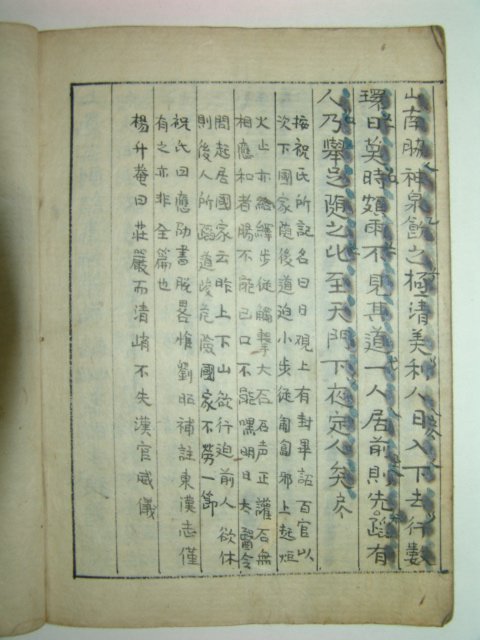 山南脇神泉飮之極淸美利人日入下去行數
環日莫時頗雨不見其道一人居前則先蹈有
人乃擧足隨之比至天門下夜定人矣
按祝氏所記名曰日現上有封畢詔百官以
次下國家隨後道迫小步從匍匐邪上起炬
火止亦絡繹步從觸擊大石石声正讙石無
相應和者腸不能已口不能嘿明日太醫令
問起居國家云昨上下山欲行迫前人欲休
則後人所蹈道峻危險國家不勞一節
祝氏曰應劭書脫畧惟劉昭補註東漢志僅
有之亦非全篇也
楊升菴曰莊嚴而清峭不失漢官威儀